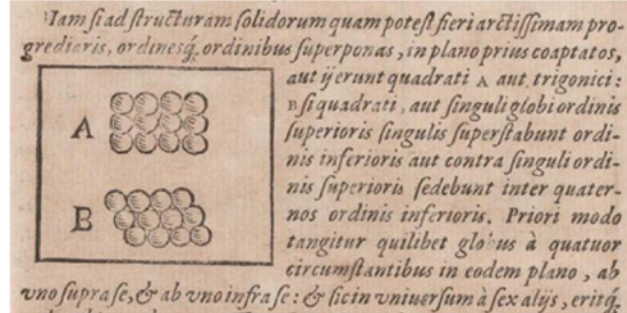 Iam si ad structuram solidorum quam potest fieri arctissimam pro-
grediaris, ordinesq́; ordinibus superponas, in plano prius coaptatos,
aut ij erunt quadrati A aut trigonici:
B si quadrati, aut singuli globi ordinis
superioris singulis superstabunt ordi-
nis inferioris aut contra singuli ordi-
nis superioris sedebunt inter quater-
nos ordinis inferioris. Priori modo
tangitur quilibet globus à quatuor
circumstantibus in eodem plano, ab
vno supra se, & ab vno infra se: & sic in vniuersum à sex alijs, eritq́;
A
B